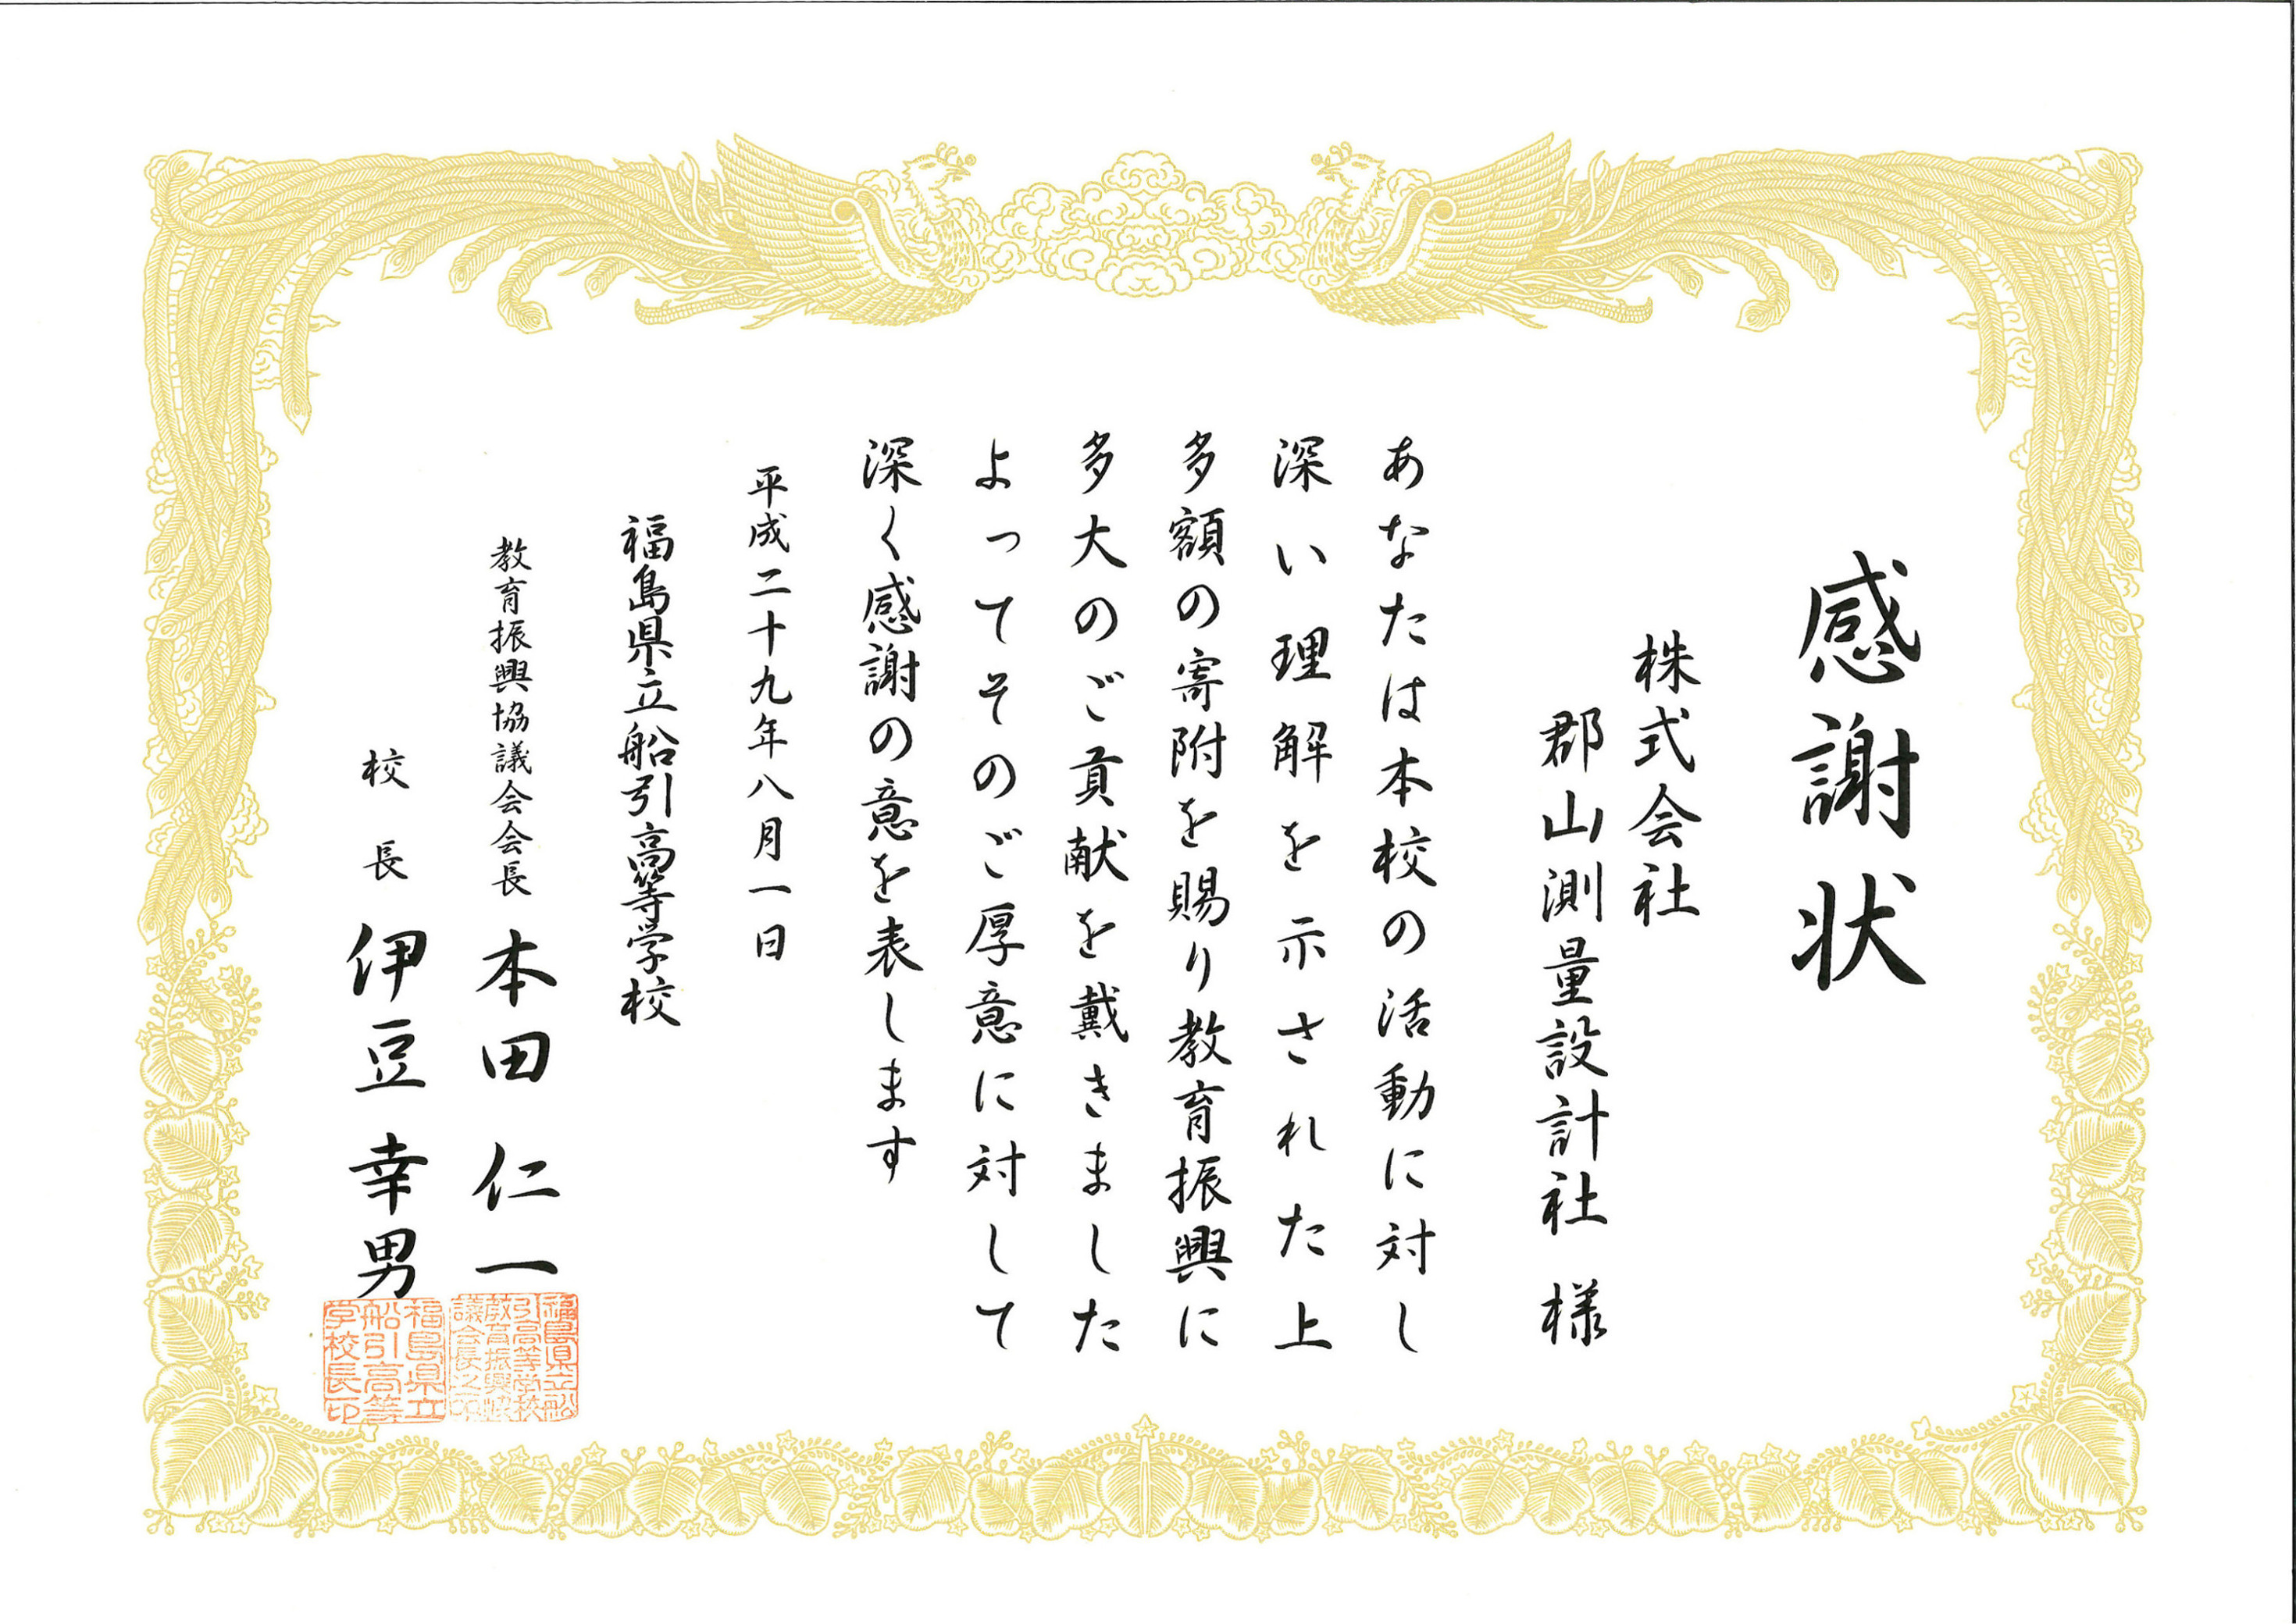 感謝状
株式会社
郡山測量設計社 様
あなたは本校の活動に対し
深い理解を示された上
多額の寄附を賜り教育振興に
多大のご貢献を戴きました
よってそのご厚意に対して
深く感謝の意を表します
平成二十九年八月一日
福島県立船引高等学校
教育振興協議会会長 本田仁一
校長 伊豆幸男
福島県立船
引高等学校
教育振興協
議会長之印
福島県立
船引高等
学校長印